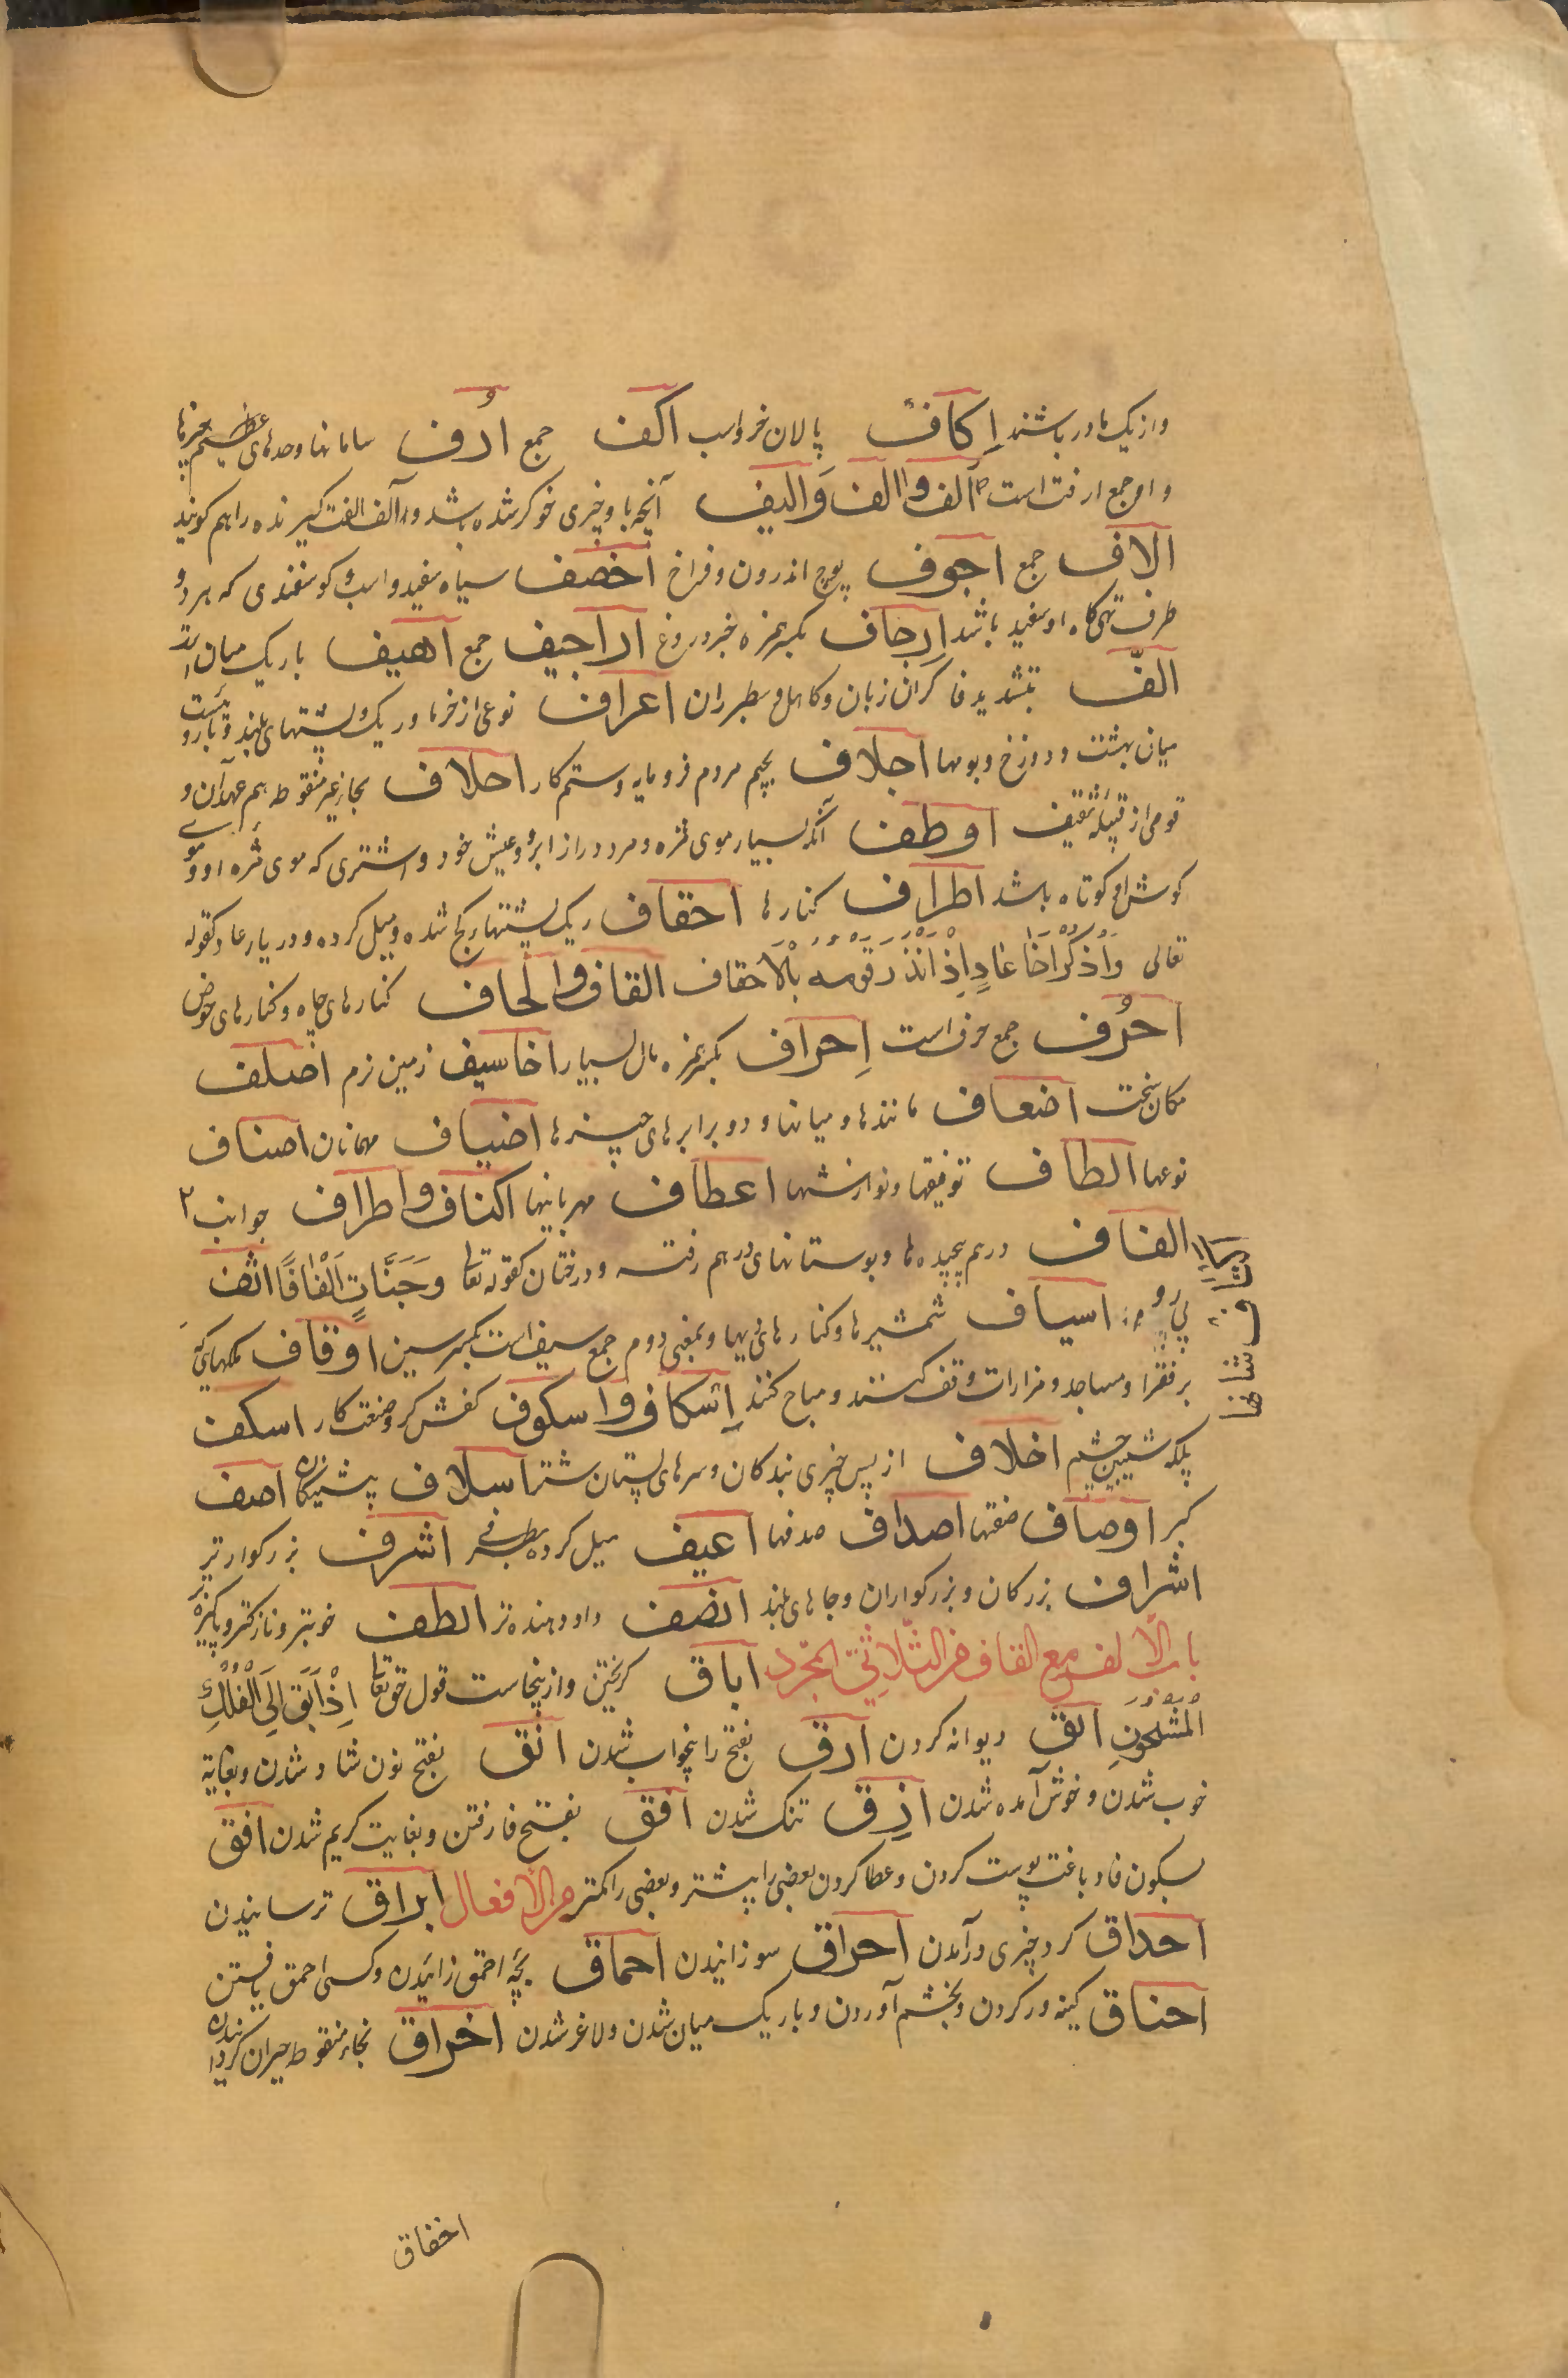 و از یک مادر باشند اِکاف پالان خر و اسب اکف جمع اُرف سامانها و حدهای عظیم چیزها
و او جمع ارفت است آلف و الف وَ الیف آنچه با و چیزی خو کر شده باشد و آلف الفت گیرنده را هم گویند
الاف جمع اجوف پوچ اندرون و فراخ اخصف سیاه سفید و اسب و گوسفندی که هر دو
طرف تهی گاه او سفید باشد اِرجاف بکسر همزه خبر دروغ اراجیف جمع اهیف باریک میان
الفّ بتشدید فا گران زبان و کاهل و سطبر ران اعراف نوعی از خرما و ریک پشتهای بلند و باروئیست
میان بهشت و دوزخ و بومها اجلاف بجیم مردم فرومایه و ستم کار احلاف بحای غیر منقوطه هم عهدان و
قومی از قبیله ثقیف اوطف آنکه بسیار موی مژه و مرد دراز ابرو و عیش خود و اشتری که موی مژه او و موی
گوش او کوتاه باشد اطراف کنارها احقاف ریک پشتهای کج شده و میل کرده و دریار عاد کقوله
تعالی وَاذْکُرْ اَخَا عَادٍ اِذْ اَنْذَرَ قَوْمَهُ بِالْاَحقاف القاف و الحاف کنارهای چاه و کنارهای حوض
احرُف جمع حرف است اِحراف بکسر همزه مال بسیار اخاسیف زمین نرم اصلف
مکان سخت اضعاف مانندها و میانها و دو برابرهای چیزها اضیاف مهمانان اصناف
نوعها الطاف توفیقها و نوازشها اعطاف مهربانیها اکناف و اطراف جوانب
الفاف درهم پیچیده ها و بوستانهای درهم رفته و درختان کقوله تعا وَجَنَّاتٍ اَلْفَافًا اثف
پی رو اسیاف شمشیرها و کنارهای دیها و بمعنی دوم جمع سیف است بکسر سین اوقاف ملکهای که
بر فقرا و مساجد و مزارات وقف کنند و مباح کنند اِسکاف و اسکوف کفش گر و صنعت کار اسکف
پلک شیبین چشم اخلاف از پس چیزی بندگان و سرهای پستان شتر اسلاف پیشینگان اصف
کبر اوصاف صفتها اصداف صدفها اعیف میل کرده بطرفی اشرف بزرگوارتر
اشراف بزرگان و بزرگواران و جاهای بلند انصف داد دهنده تر الطف خوبتر و نازکتر و پاکیزه
باب الألف مع القاف من الثّلاثیّ المجرد اباق گریختن و از ینجاست قول حق تعا اِذْ اَبَقَ اِلَی الْفُلْکِ
الْمَشْحُونِ الق دیوانه کردن ارق بفتح را بیخواب شدن انق بفتح نون شاد شدن و بغایة
خوب شدن و خوش آمده شدن ازق تنک شدن افق بفتح فا رفتن و بغایت کریم شدن افق
بسکون فا دباغت پوست کردن و عطا کردن بعضی را بیشتر و بعضی را کمتر من الأفعال ابراق ترسانیدن
احداق کرد چیزی در آمدن احراق سوزانیدن احماق بچّه احمق زائیدن و کسی احمق یافتن
احناق کینه ور کردن و بخشم آوردن و باریک میان شدن و لاغر شدن اخراق بخاء منقوطه حیران
اخفاق